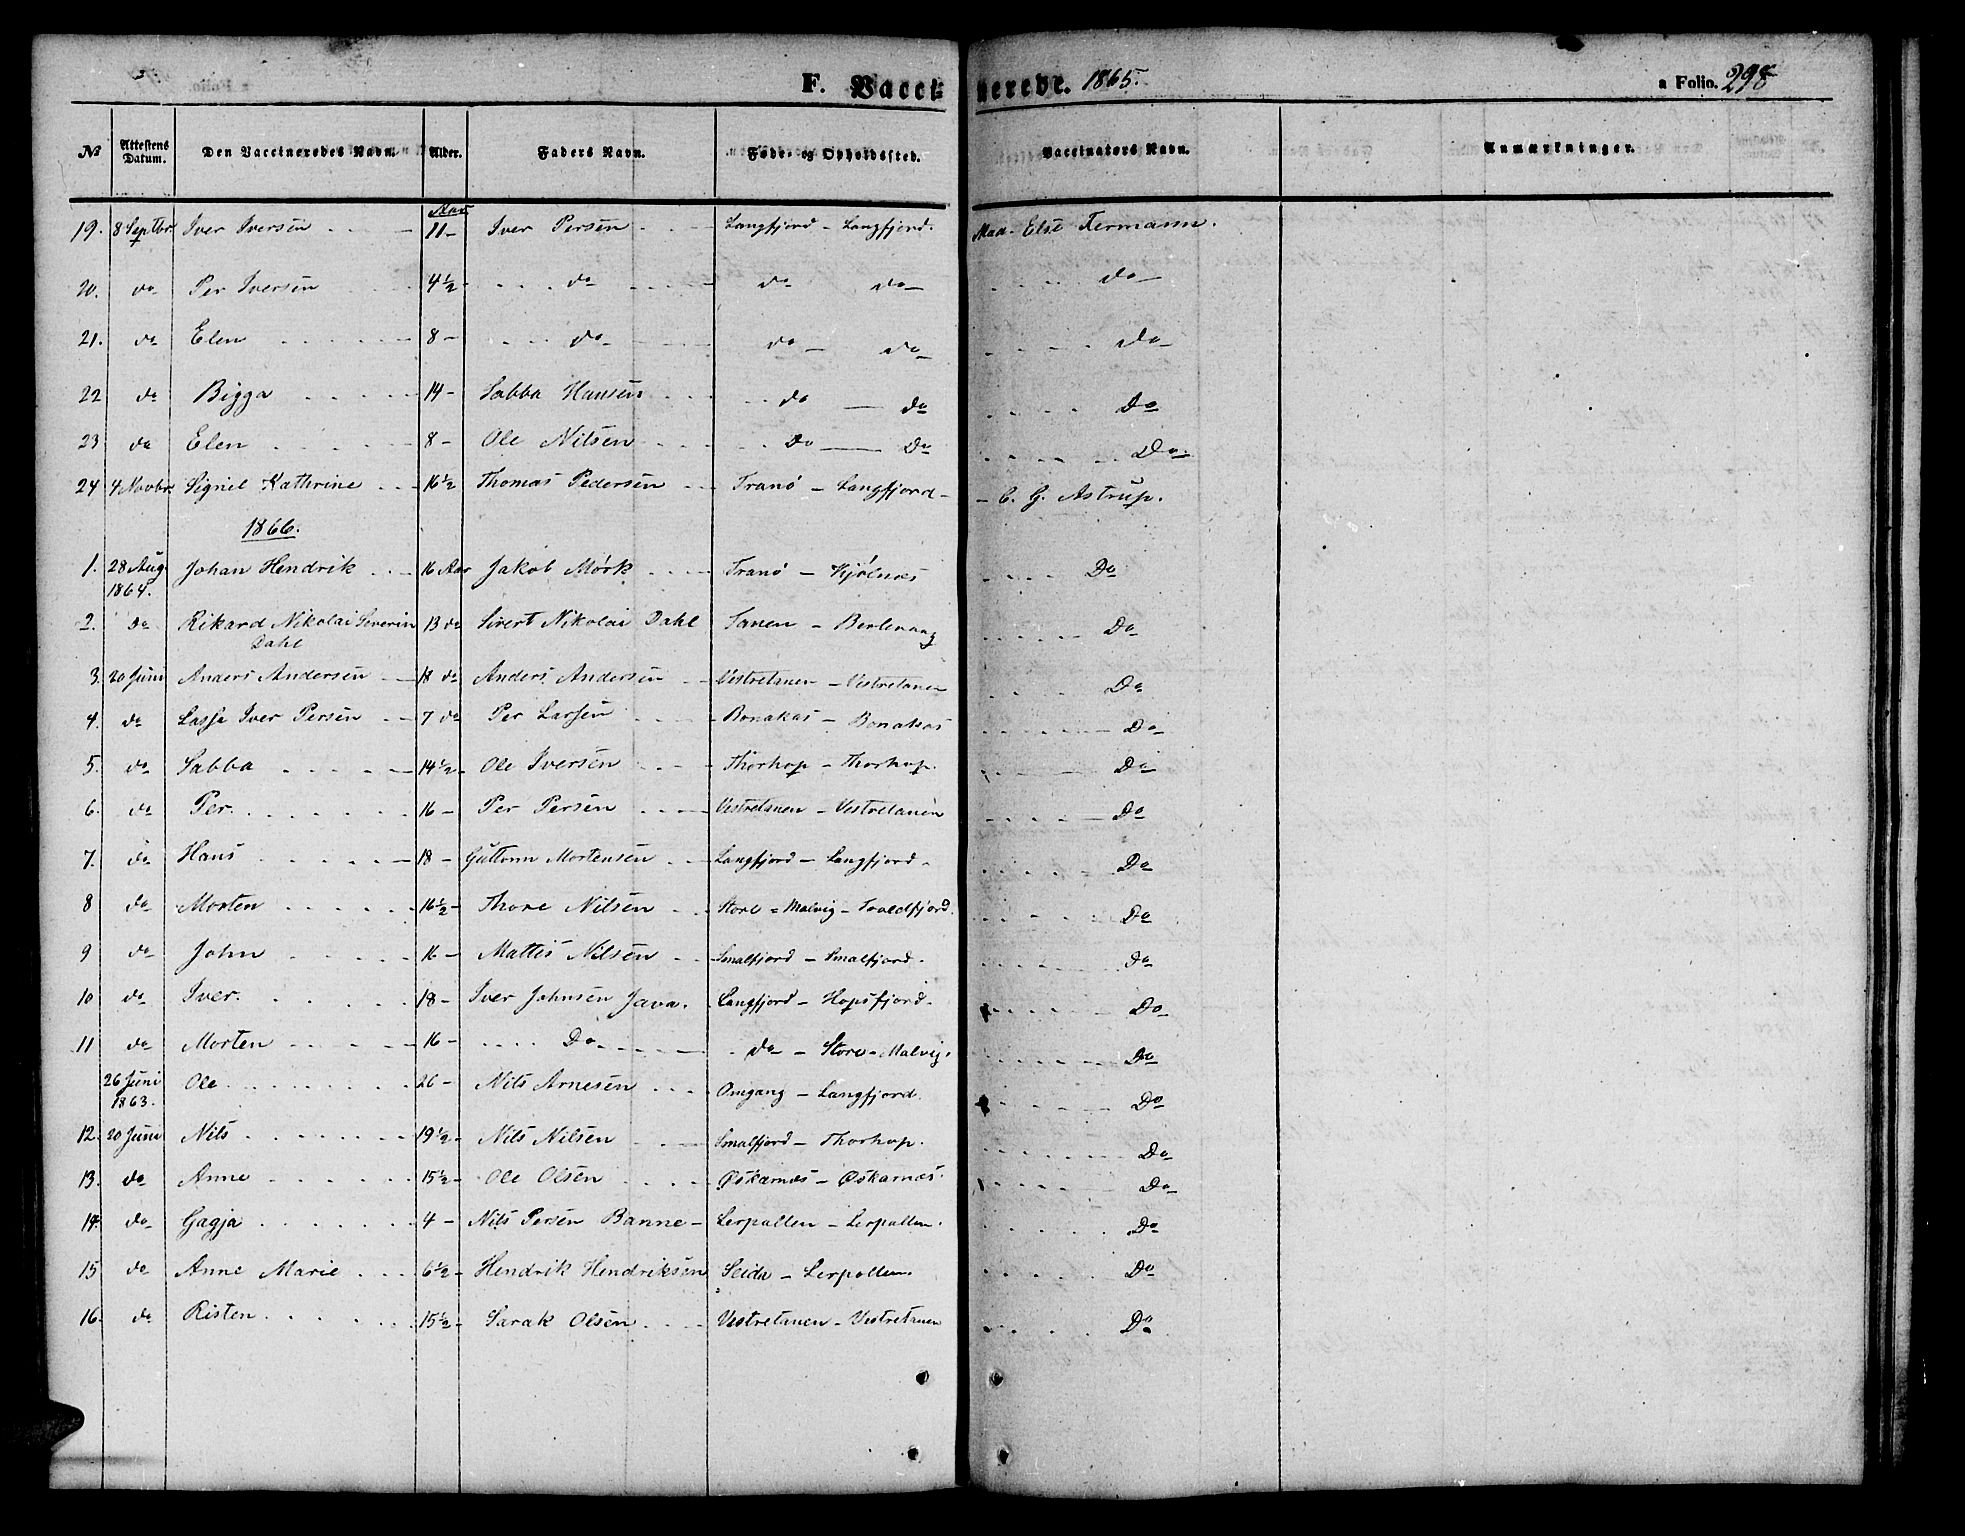 F. Vaccinerede. 1865. a Folio. 298
№ Attestens Datum. Den Vaccineredes Navn. Alder. Faders Navn. Føde- og Opholdssted. Vaccinators Navn. Anmærkninger.
19. 8 Septbr. Iver Iversen Aar 11 - Iver Persen Langfjord - Langfjord. Mad. Else Fermann.
20. do Per Iversen 4½ - do do do do
21. do Elen 8 - do do - do do
22 do Bigga 14 - Sabba Hansen do - do Do
23 do Elen 8 - Ole Nilsen Do - Do Do
24 4 Novbr. Signel Kathrine 16½ Thomas Pedersen Tranö - Langfjord - C. G. Astrup.
1866.
1. 28 Aug. 1864. Johan Hendrik 16 Aar Jakob Mörk Tranö - Kjölnæs Do
2. Do Rikard Nikolai Severin Dahl 13 do Sivert Nikolai Dahl Tanen - Berlevaag Do
3. 20 Juni Anders Andersen 18 do Anders Andersen Vestretanen - Vestretanen Do
4. do Lassa Iver Persen 7 do Per Larsen Bonakas - Bonakas Do
5. do Sabba 14½ - Ole Iversen Thorhop - Thorhop. Do
6. do Per. 16 - Per Persen Vestretanen - Vestretanen Do
7. do Hans 18 - Guttorm Mortensen Langfjord - Langfjord. Do
8 do Morten 16½ - Thore Nilsen Store = Malvig - Do
9 do John 16 - Mattis Nilsen Smalfjord - Smalfjord. Do
10 do Iver. 18 - Iver Johnsen Java. Langfjord - Hopsfjord. Do
11 do Morten 16 - Do do - Store-Malvig. Do
26 Juni 1863. Ole 26 - Nils Arnesen Omgang - Langfjord. Do
12. 20 Juni Nils 19½ - Nils Nilsen Smalfjord - Thorhop. Do
13. do Anne 15½ - Ole Olsen Øskarnæs - Øskarnæs. Do
14. do Gagja 4 - Nils Persen Banne - Lerpollen - Lerpollen. Do
15 do Anne Marie 6½ - Hendrik Hendriksen Seida - Lerpollen. Do
16. do Risten 15½ - Sarak Olsen Vestretanen - Vestretanen Do